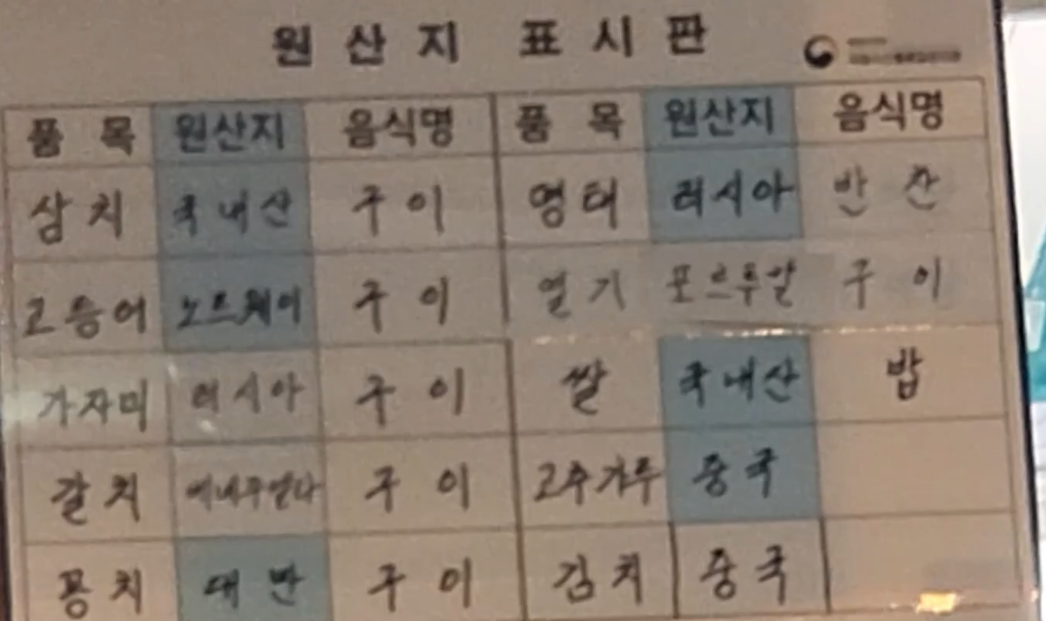 원산지 표시판
품목 원산지 음식명 품목 원산지 음식명
삼치 국내산 구이 명태 러시아 반찬
고등어 노르웨이 구이 열기 포르투갈 구이
가자미 러시아 구이 쌀 국내산 밥
갈치 구이 고추가루 중국
꽁치 대만 구이 김치 중국